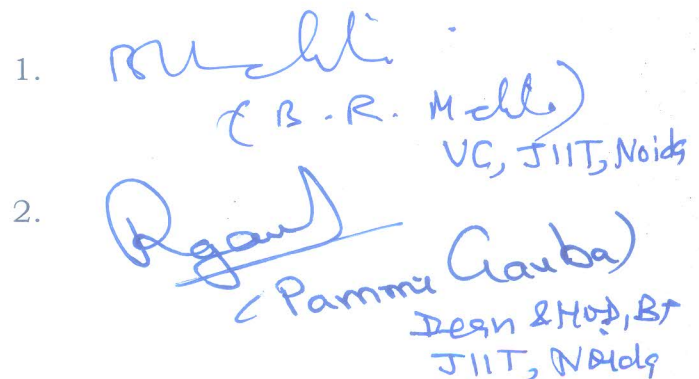 1.
(B.R. Mehta)
VC, JIIT, Noida
2.
(Pammi Gauba)
Dean & HoD, BT
JIIT, Noida